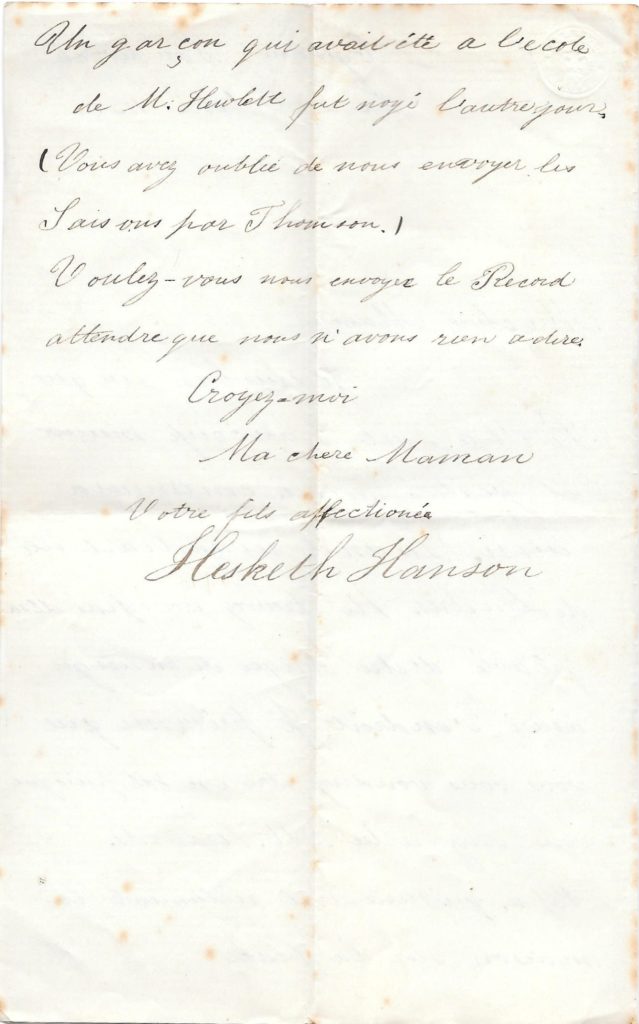 Un garçon qui avait été a l'ecole
de M. Hewlett fut noyé l'autre jour.
(Vous avez oublié de nous envoyer les
Saisons par Thomson.)
Voulez-vous nous envoyer le Record
attendre que nous n'avons rien a dire.
Croyez-moi
Ma chere Maman
Votre fils affectionée
Hesketh Hanson